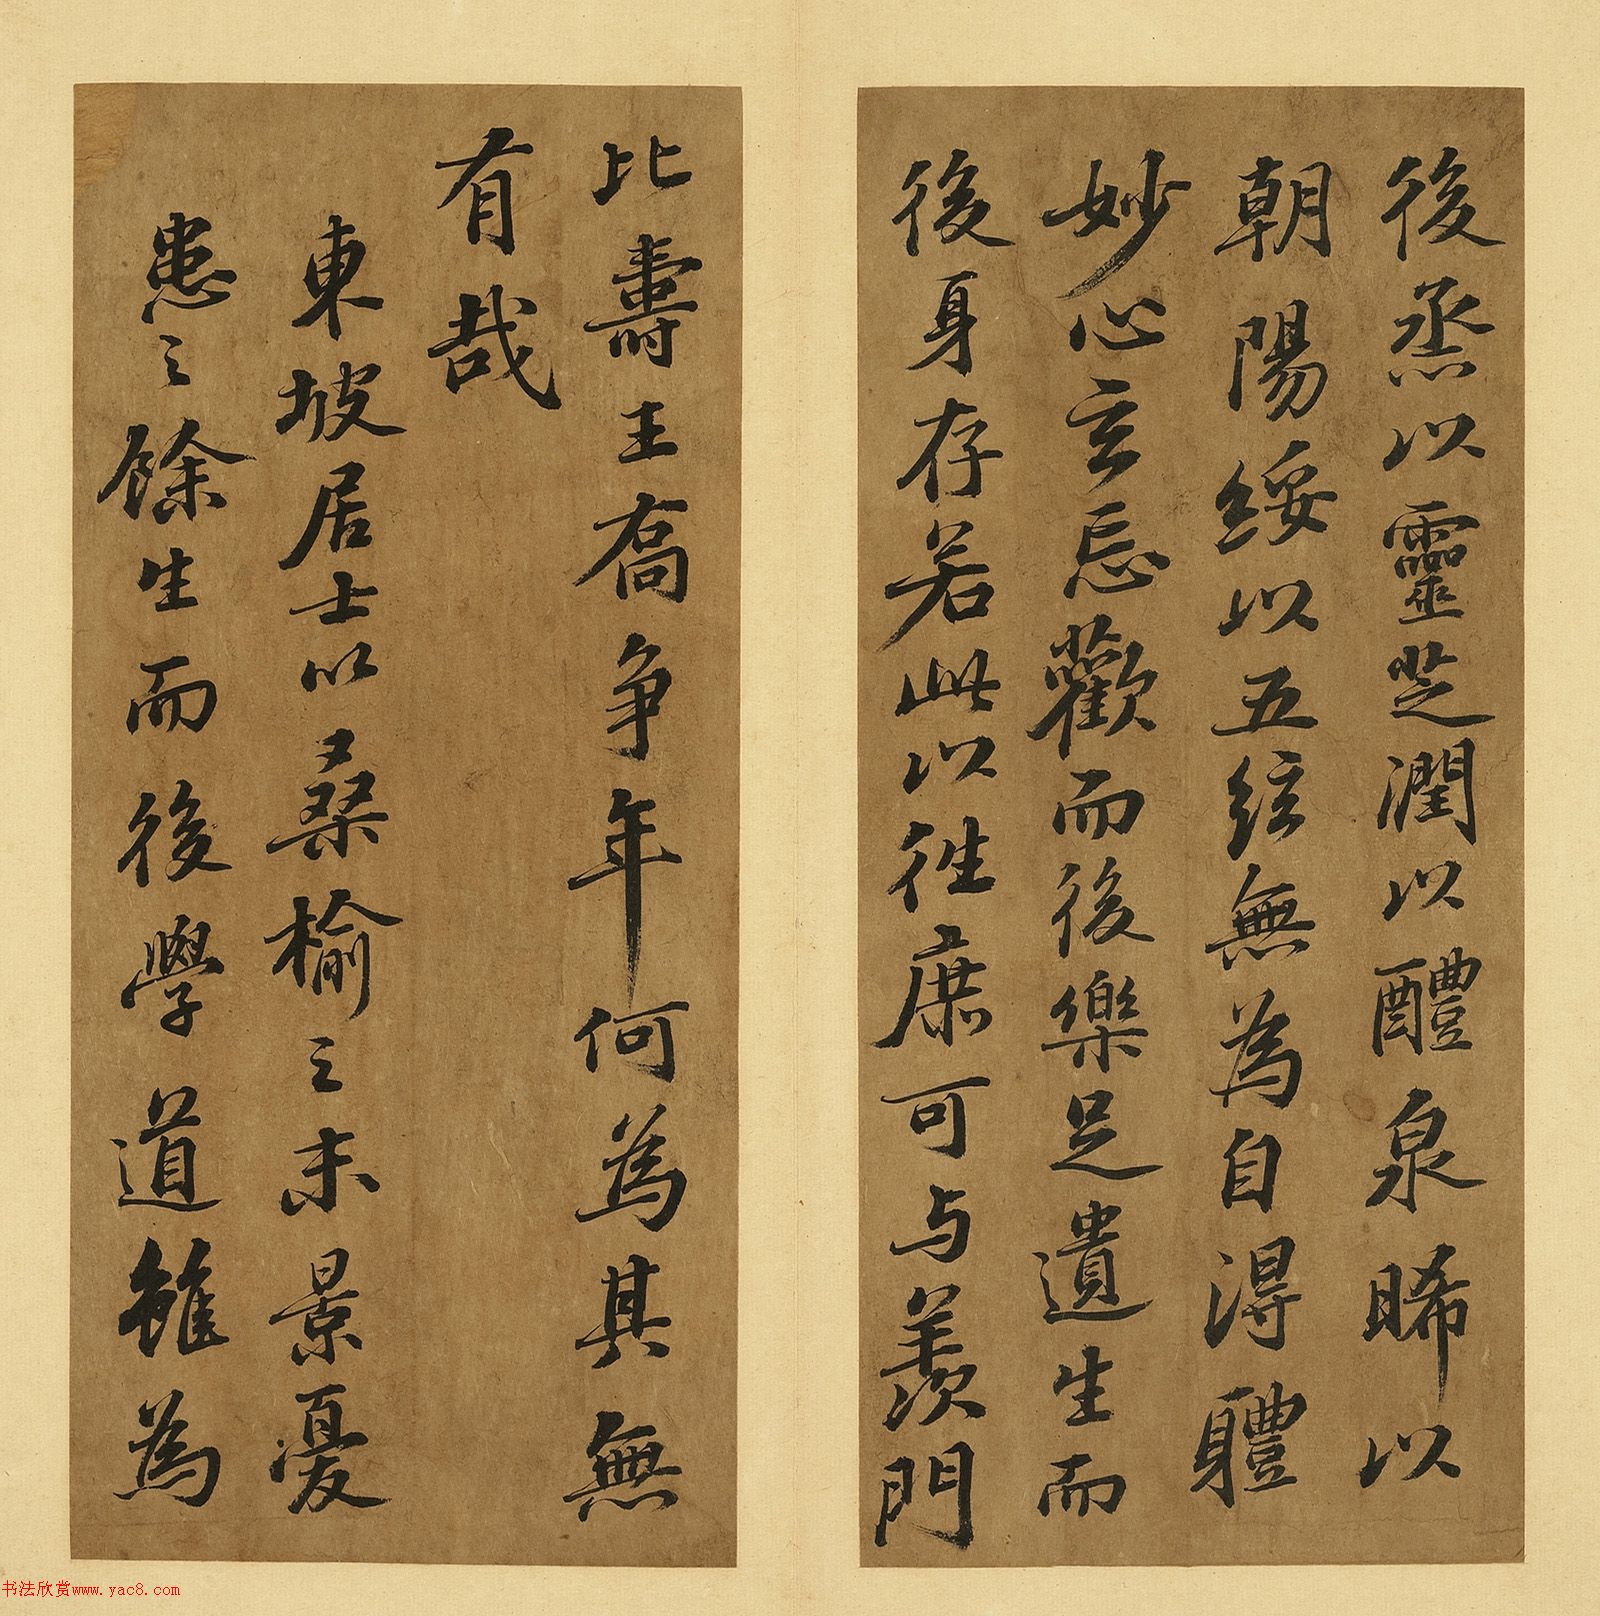 後烝以靈芝潤以醴泉晞以
朝陽綏以五絃無為自淂軆
妙心玄忘歡而後樂足遺生而
後身存若此以往庶可与羨門
比壽王喬争年何為其無
有哉
東坡居士以桑榆之末景憂
患之餘生而後學道雖為
书法欣赏www.yac8.com